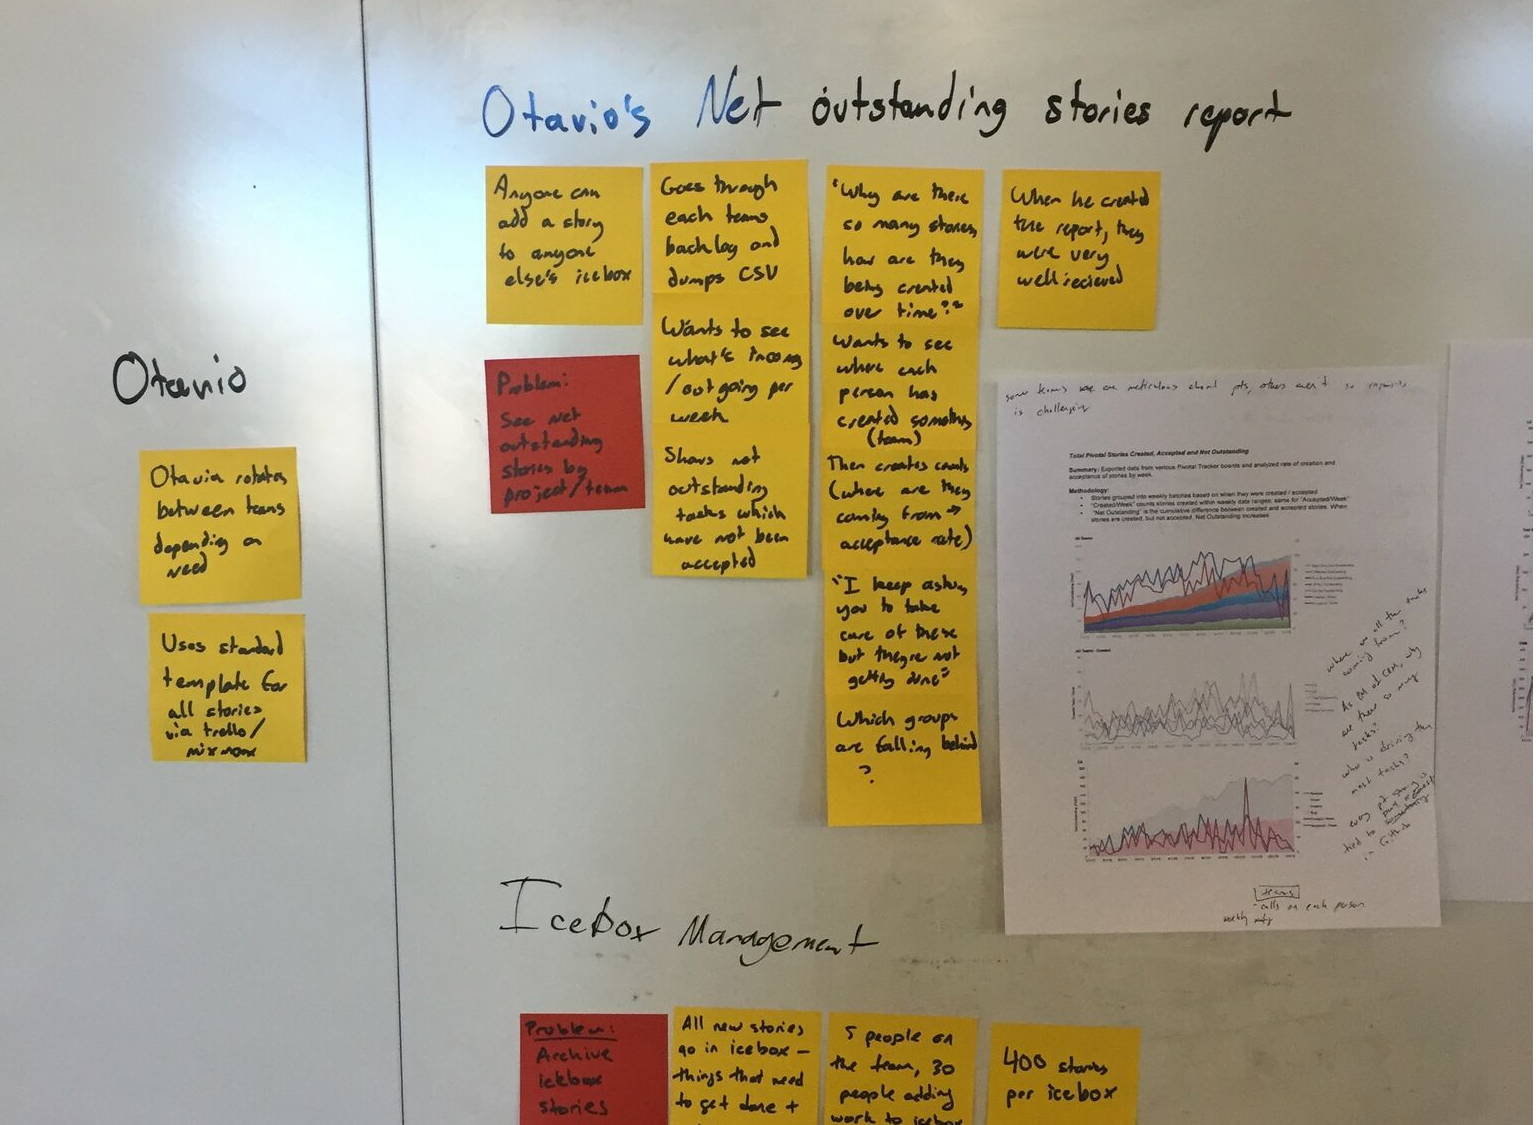 Otavio's Net outstanding stories report
Anyone can
add a story
to anyone
else's icebox
Problem:
See Net
outstanding
stories by
project/team
Goes through
each teams
backlog and
dumps CSV
Wants to see
what's incoming
/outgoing per
week
Shows net
outstanding
tasks which
have not been
accepted
"Why are there
so many stories,
how are they
being created
over time?"
Wants to see
where each
person has
created something
(team)
Then creates counts
(where are they
coming from →
acceptance rate)
"I keep asking
you to take
care of these
but theyre not
getting done"
Which groups
are falling behind
?
When he created
the report, they
were very
well recieved
Otavio
Otavio rotates
between teams
depending on
need
Uses standard
template for
all stories
via trello/
mixmax
some teams are meticulous about pts, others aren't so
is challenging
Total Pivotal Stories Created, Accepted and Not Outstanding
Summary: Exported data from various Pivotal Tracker boards and analyzed rate of creation and
acceptance of stories by week.
Methodology:
• Stories grouped into weekly batches based on when they were created / accepted
• "Created/Week" counts stories created within weekly date ranges; same for "Accepted/Week"
• "Net Outstanding" is the cumulative difference between created and accepted stories. When
stories are created, but not accepted, Net Outstanding increases
All Teams
All Teams - Created
where are all the tasks
coming from?
why
are there so many
tasks?
who is driving the
most tasks?
every pt story is
tied to
in Github
teams
- calls on each person
weekly mtg
Icebox Management
Problem:
Archive
icebox
stories
All new stories
go in icebox -
things that need
to get done +
5 people on
the team, 30
people adding
work to icebox
400 stories
per icebox